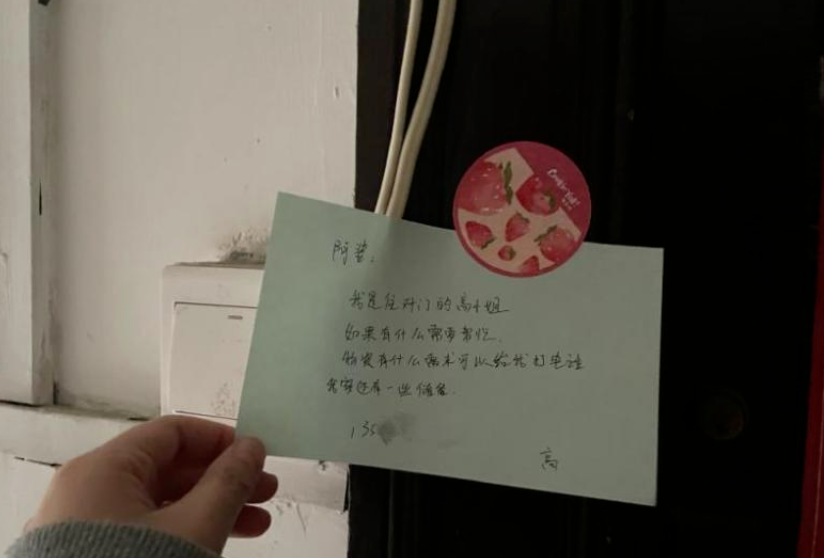 阿婆:
我是住对门的高小姐
如果有什么需要帮忙.
物资有什么需求可以给我打电话
我家还有一些储备.
135
高